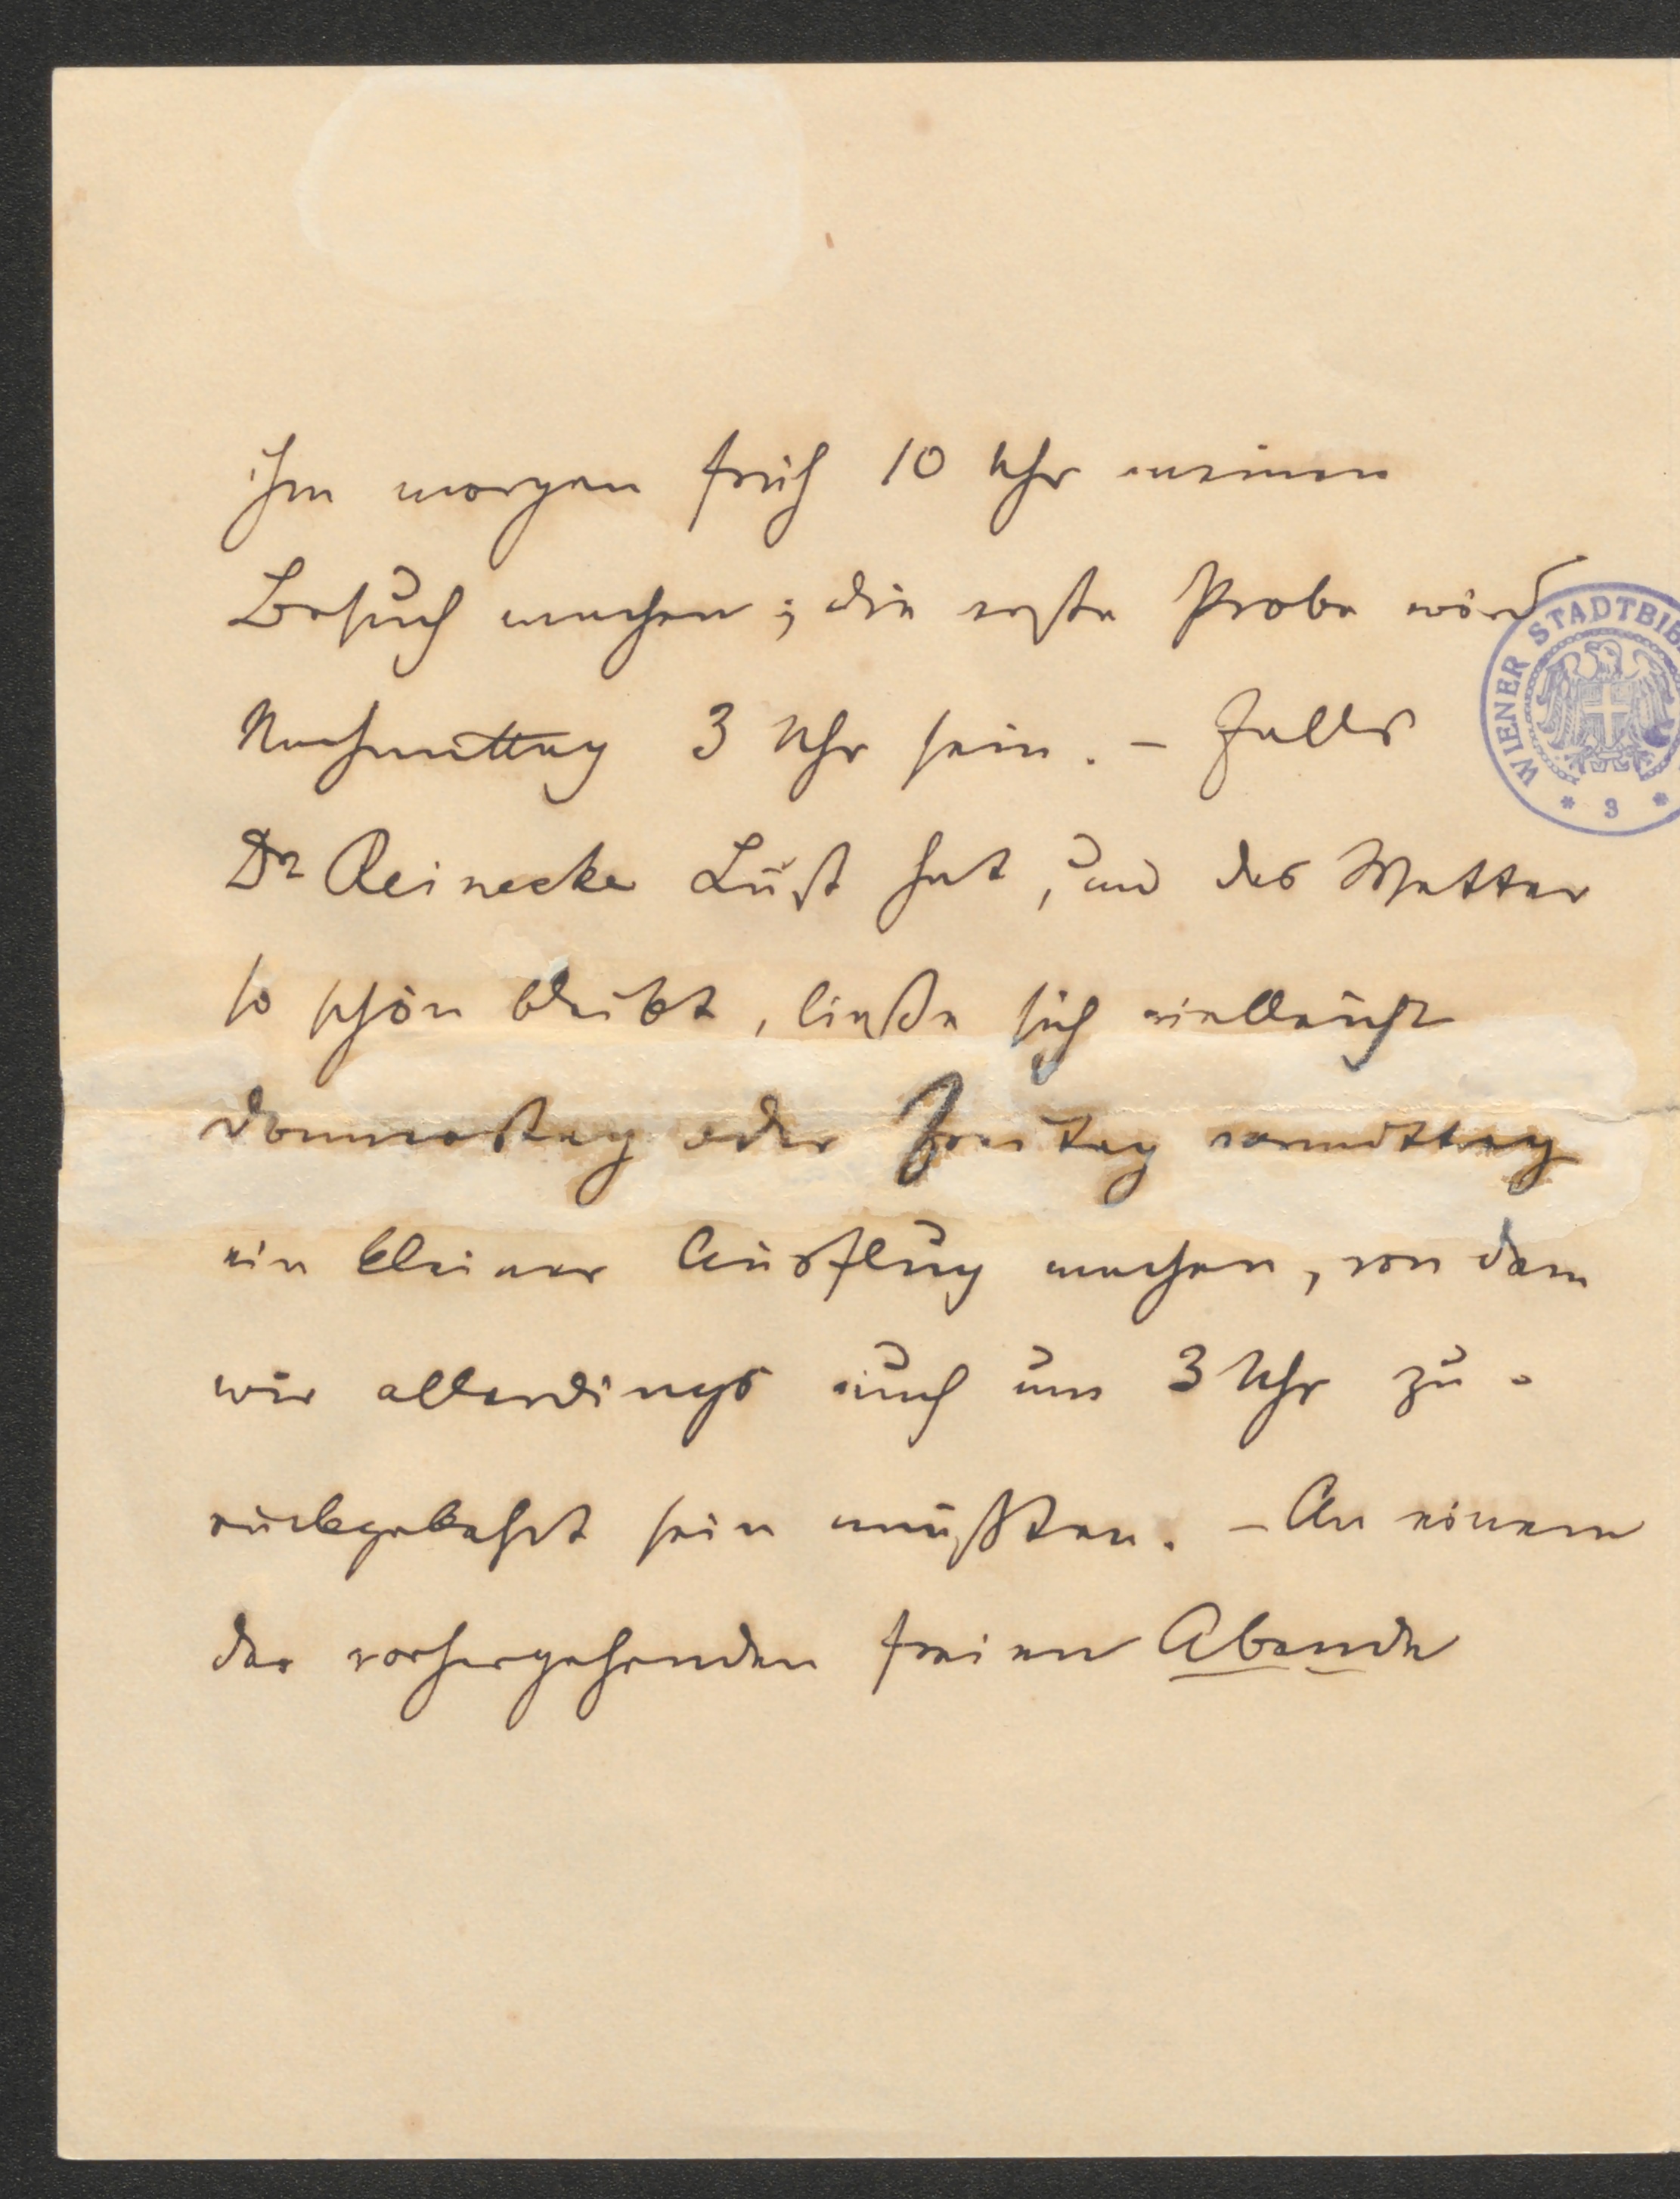 ihm morgen früh 10 Uhr meinen
Besuch machen; die erste Probe wird
Nachmittag 3 Uhr sein. – Falls
Dr Reinecke Lust hat, und das Wetter
so schön bleibt, ließe sich vielleicht
Donnerstag oder Freitag vormittag
ein kleiner Ausflug machen, von dem
wir allerdings auch um 3 Uhr zu-
rückgekehrt sein müßten. – An einem
der vorhergehenden freien Abende
WIENER STADTBIB
* 3 *